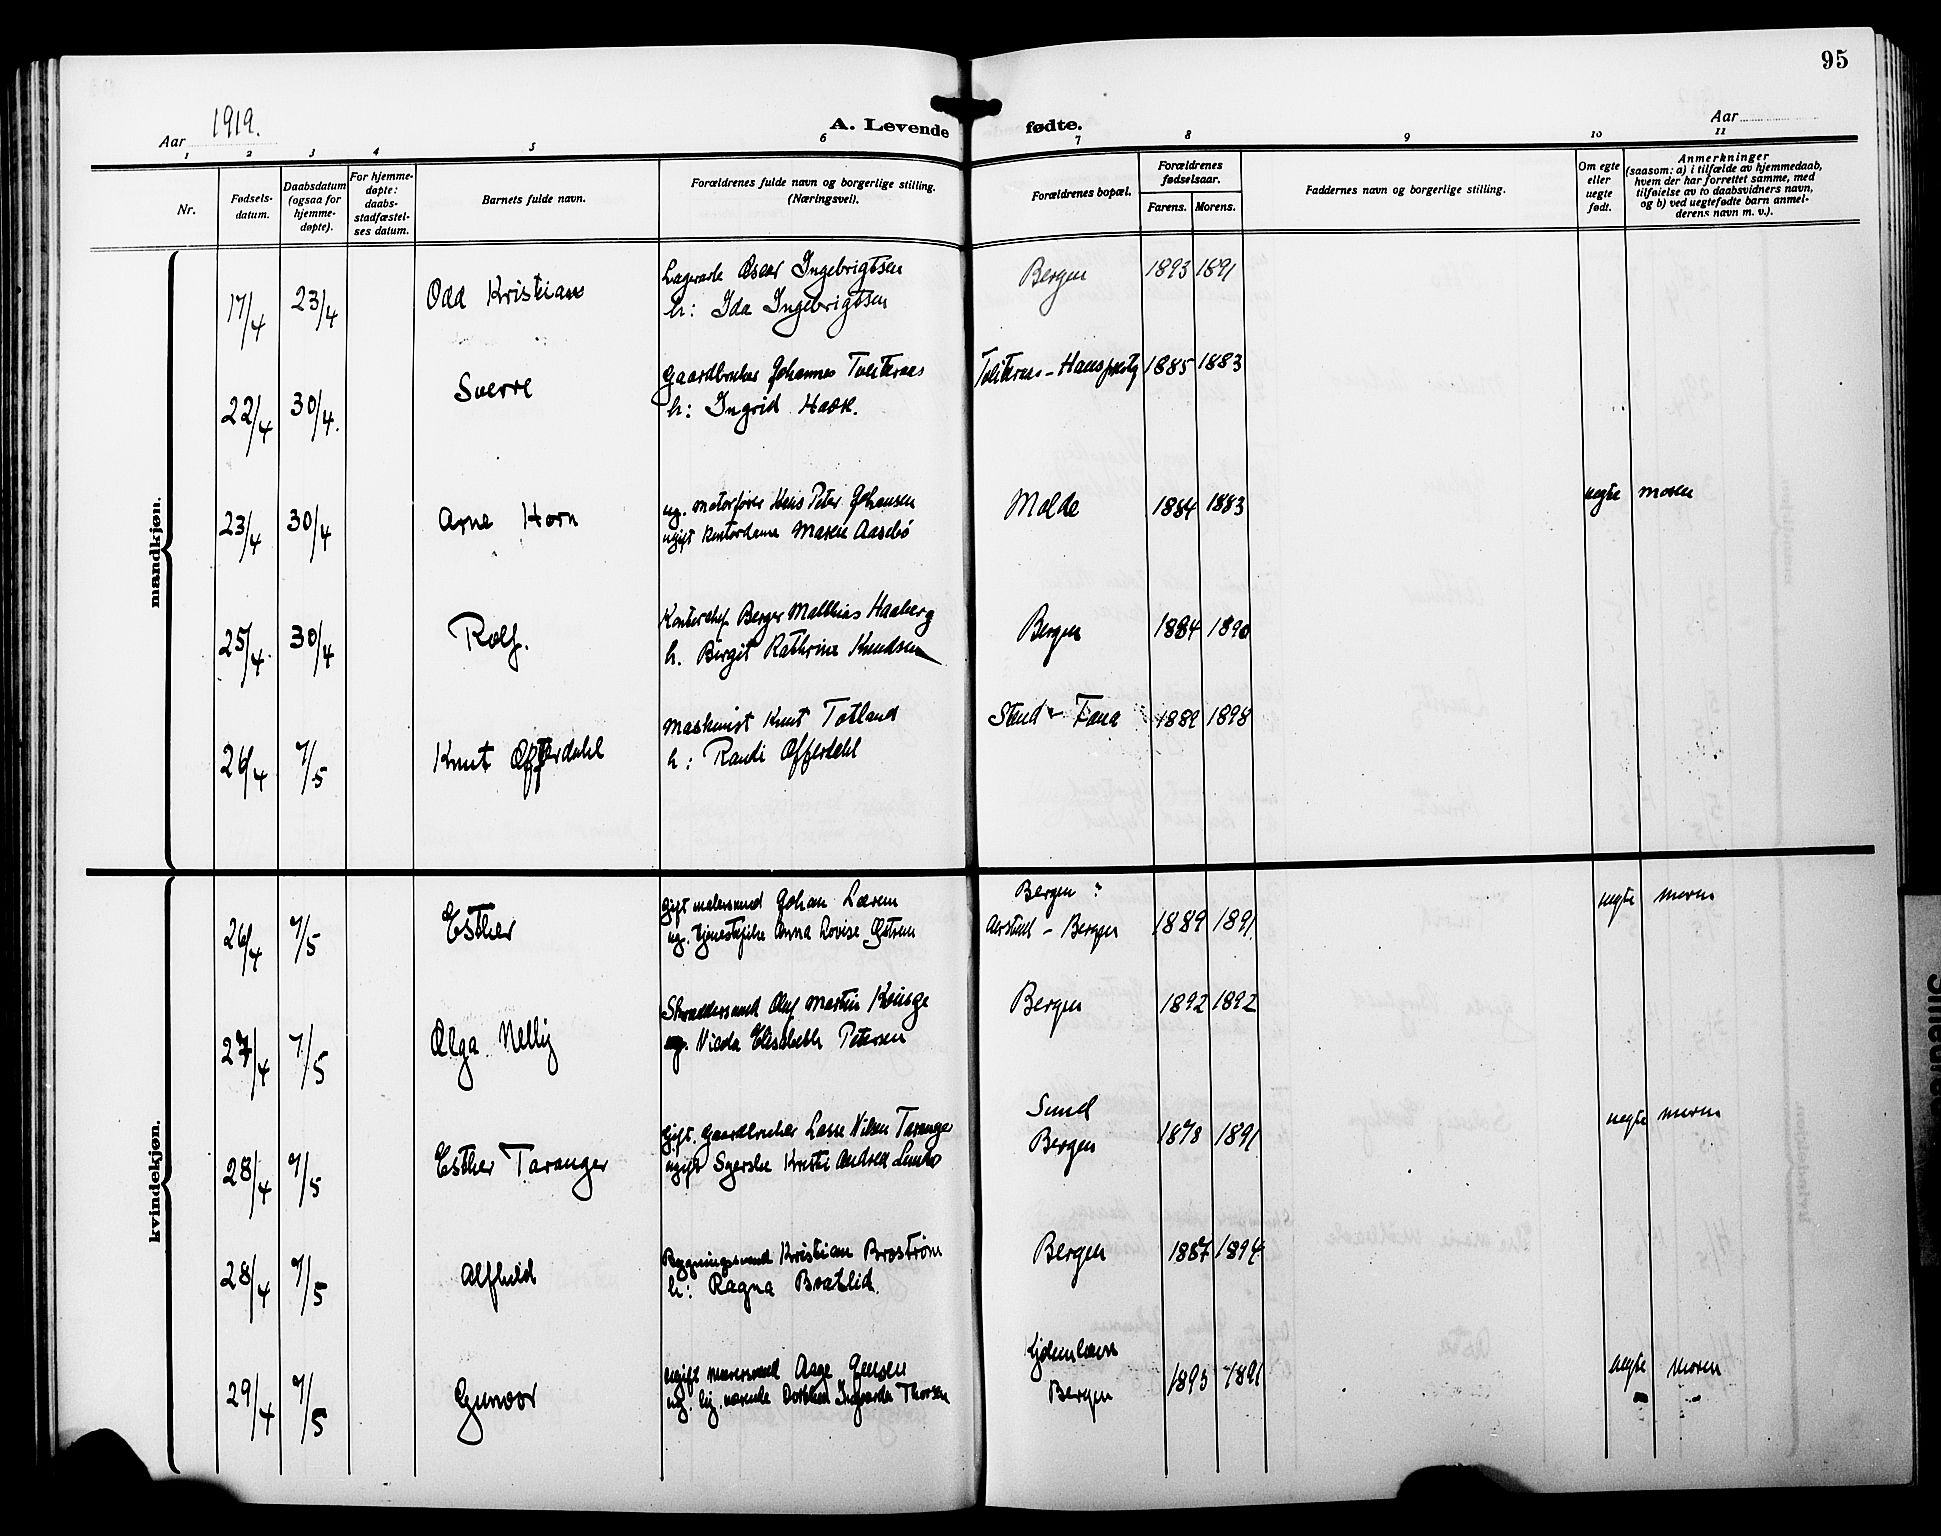 95
Aar 1919.
A. Levende fødte.
Aar
1 2 3 4 5 6 7 8 9 10 11
Nr.
Fødsels-
datum.
Daabsdatum
(ogsaa for
hjemme-
døpte).
For hjemme-
døpte:
daabs-
stadfæstel-
ses datum.
Barnets fulde navn.
Forældrenes fulde navn og borgerlige stilling.
(Næringsvei).
Forældrenes bopæl.
Forældrenes
fødselsaar.
Farens. Morens.
Faddernes navn og borgerlige stilling.
Om egte
eller
uegte
født.
Anmerkninger
(saasom: a) i tilfælde av hjemmedaab,
hvem der har forrettet samme, med
tilføielse av to daabsvidners navn,
og b) ved uegtefødte barn anmel-
derens navn m. v.).
mandkjøn.
17/4 23/4 Odd Kristian Oscar Ingebrigtsen Bergen 1893 1891
h: Ida Ingebrigtsen
22/4 30/4. Sverre Gaardbruker Johannes 1885 1883
h: Ingrid
23/4 30/4 Arne Horn ug. motorfører Peter Johansen Molde 1884 1883 uegte moren
ugift kontordame Maren Aasebø
25/4. 30/4 Rolf. Kontorchef Berger Matthias Haaberg Bergen 1884 1890
h. Birgit Kathrine Knudsen
26/4 7/5 Knut Offerdahl Maskinist Knut Totland Stend - Fana 1889 1898
h: Randi Offerdahl
kvindekjøn.
26/4 7/5 Esther gift malersvend Johan Bergen : 1889 1891 uegte moren
ug. tjenestepike Anna Lovise Aarstad - Bergen
27/4 7/5 Olga Nelly Skræddersvend Oluf Martin Bergen 1892 1892
Elisabeth Petersen
28/4 7/5 Esther Taranger Gift. Gaardbruker Lasse Nilsen Taranger Sund 1878 1891 uegte moren
ugift Syerske Andrea Bergen
28/4 7/5 Alfhild Bygningssvend Kristian Brostrøm Bergen 1887 1894
h: Ragna Bratlid.
29/4 7/5 Gunvor ugift murersvend Aage Jensen 1893 1891 uegte moren
ug. Thorsen Bergen